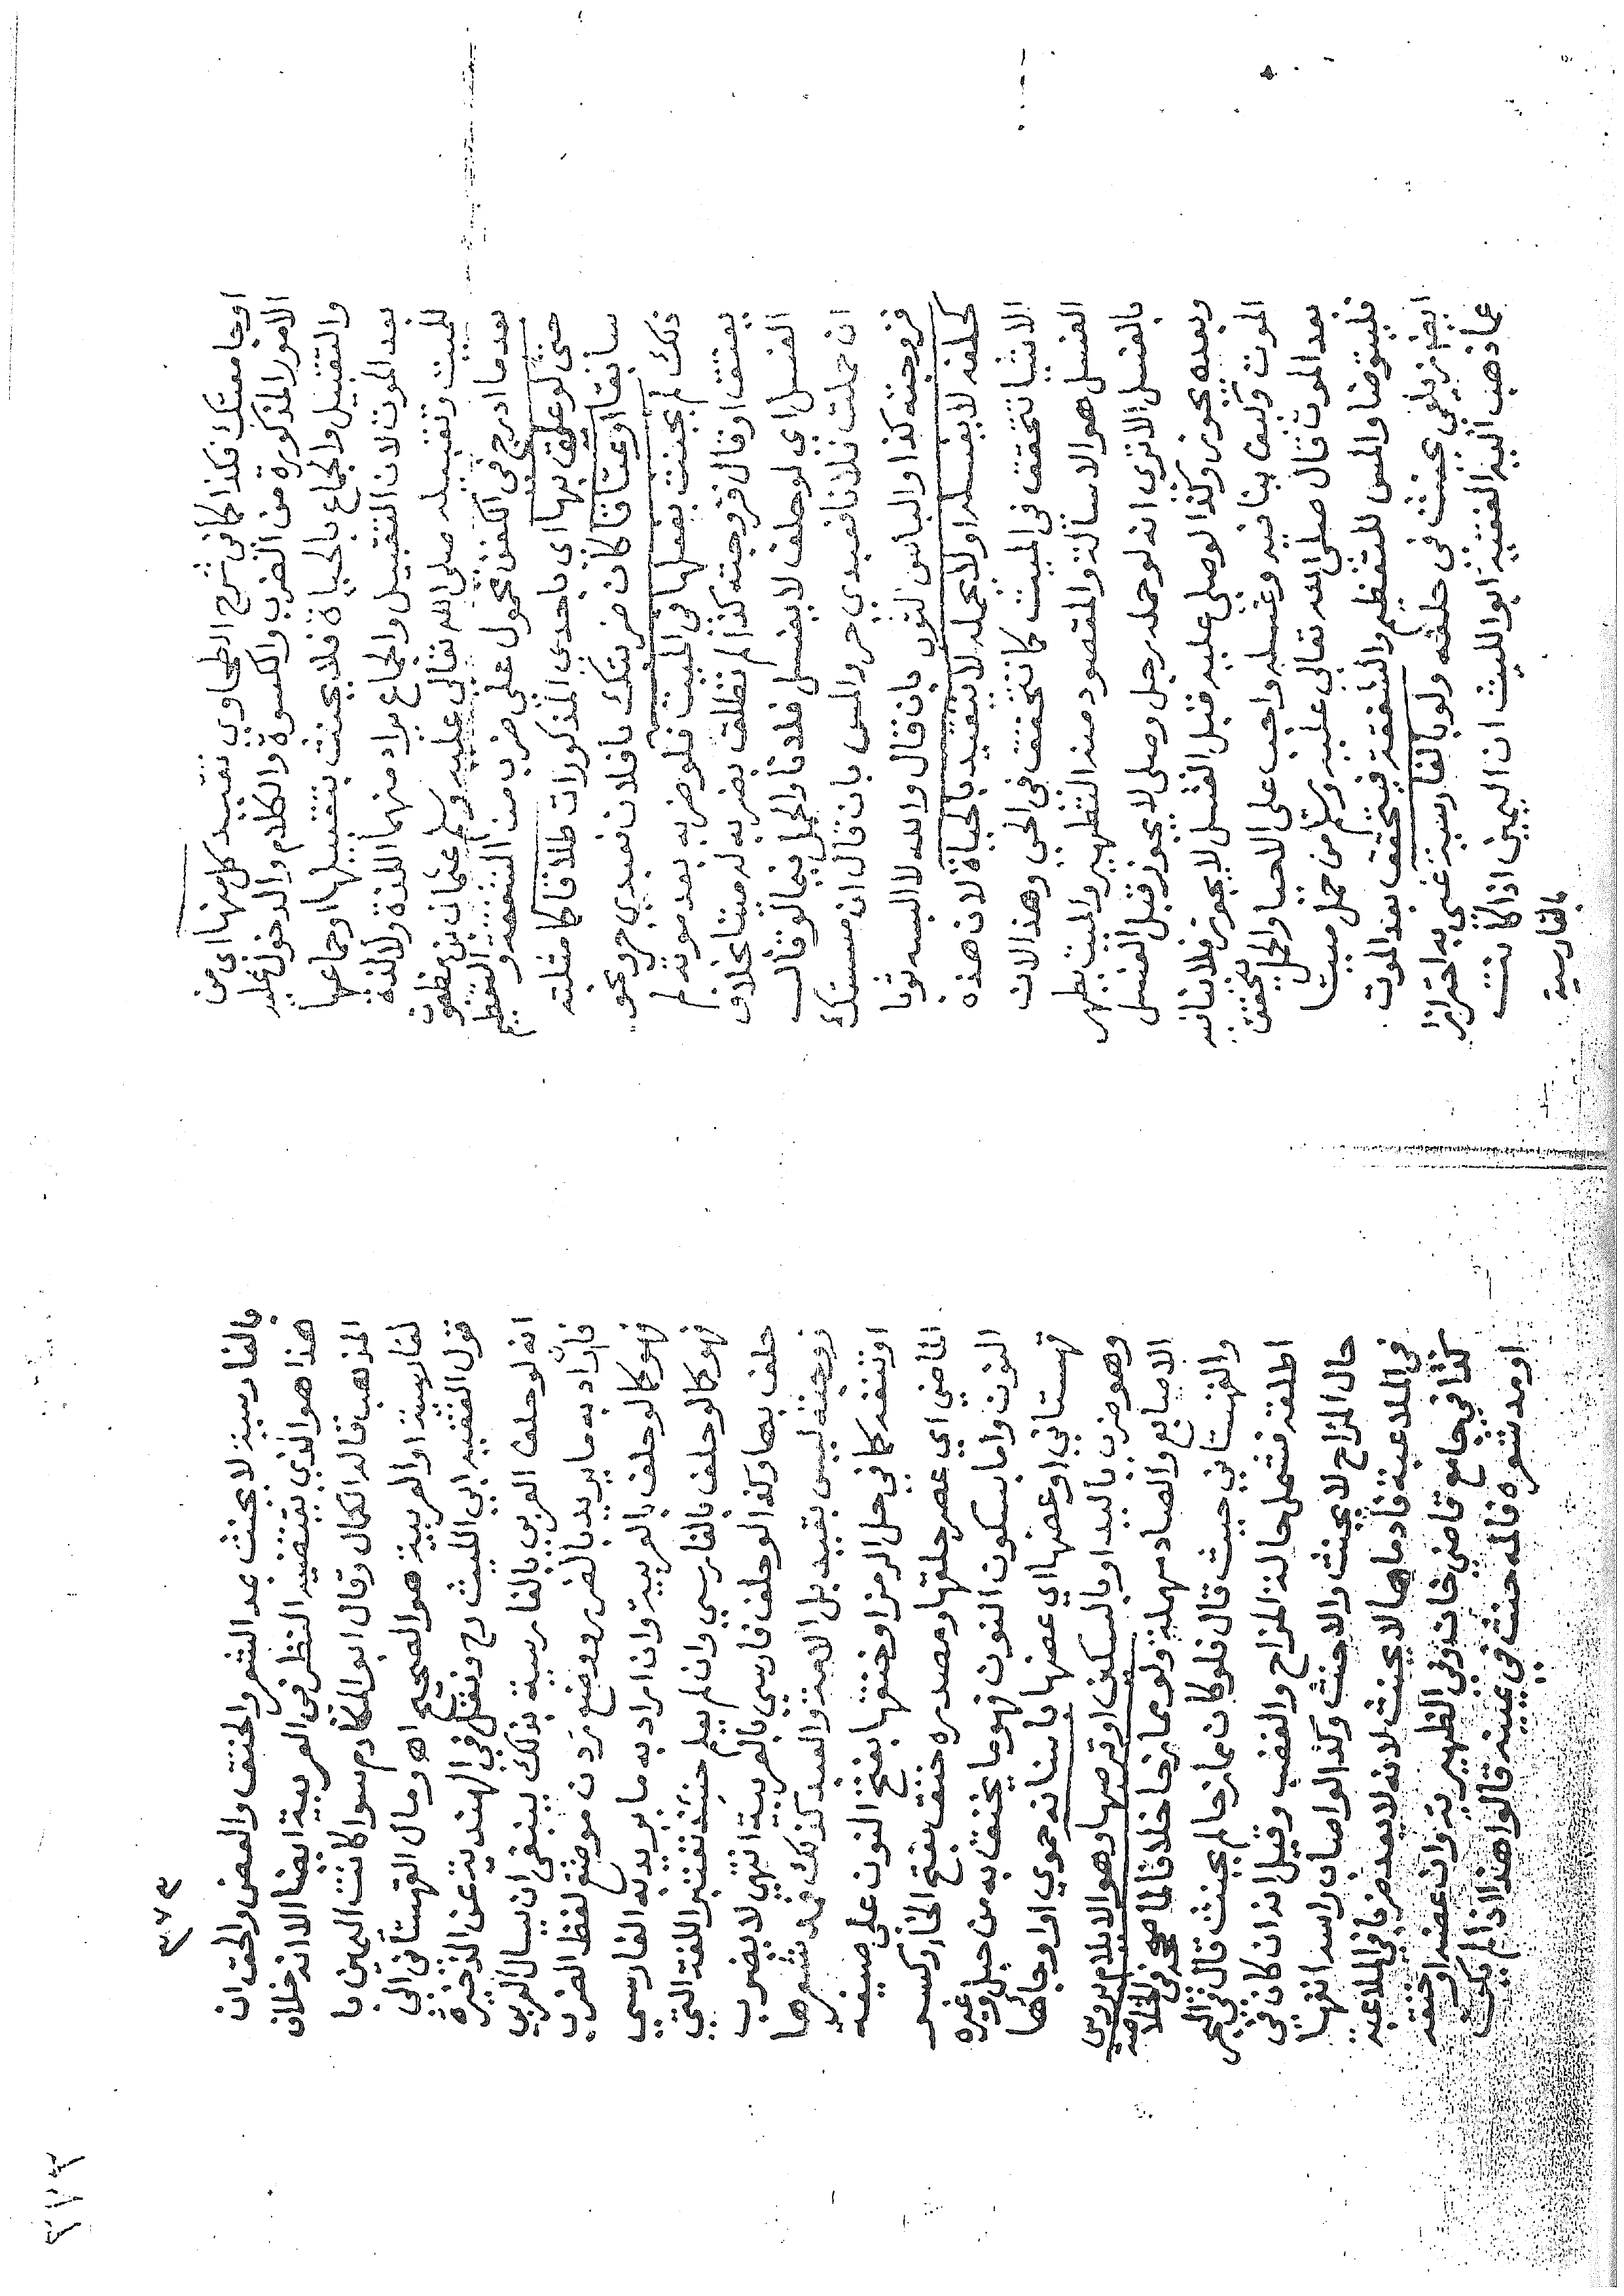 او جامعتك فكذا كما في شرح الطحاوي تقيد كل منها اي من
الامور المذكورة من الضرب والكسوة والكلام والدخول عليه
والتقبيل والجماع بالحياة فلا يحنث بتقبيلها او جماعها
بعد الموت لان التقبيل والجماع يراد منهما اللذة ولا لذة
للميت وتقبيله صلى الله تعالى عليه وسلم عثمان بن مظعون
بعد ما ادرج في الكفن محمول على ضرب من الشفقة والتعظيم
حتى لو علق بها اي باحدى المذكورات طلاقا كما مثلته
سابقا او عتاقا كان ضربتك يا فلان فعبدي حر ونحو
ذلك لم يحنث بفعلها في الميت فلو ضربه بعد موته لم
يعتق او قال فزوجته كذا لم تطلق بضربه له ميتا بخلاف
الغسل اي لو حلف لا يغسل فلانا والحمل فيما لو قال
ان حملت فلانا فعبدي حر والمس بان قال ان مسستك
فزوجته كذا والباس الثوب بان قال والله لا البسه ثوبا
كحلفه لا يغسله او لا يحمله لا تتقيد بالحياة لان هذه
الاشيا تتحقق في الميت كما تتحقق في الحي وهذا لان
الغسل هو الاسالة والمقصود منه التطهير والميت يطهر
بالغسل الا ترى انه لو حمله رجل وصلى لا يجوز قبل الغسل
وبعده يجوز وكذا لو صلى عليه قبل الغسل لا يجوز فلا ينافيه
الموت وكيف ينافيه وغسله واجب على الاحيا والحمل يتحقق
بعد الموت قال صلى الله تعالى عليه وسلم من حمل ميتا
فليتوضا والمس للتعظيم والشفقة فيتحقق بعد الموت
ايضا زيلعي يحنث في حلفه ولو بالفارسية غنى به احترازا
عما ذهب اليه الفقيه ابو الليث ان اليمين اذا كانت
بالفارسية
٣٧٣
بالفارسية لا يحنث بمد الشعر والخنق والعض والحق ان
هذا هو الذي يقتضيه النظر في العربية ايضا الا انه خلاف
المذهب قاله الكمال وقال ابو المكارم سوا كانت اليمين با
لفارسية او العربية هو الصحيح اهـ ومال القهستاني الى
قول الفقيه ابي الليث رح ونقل في الهندية عن الذخيرة
انه لو حلف العربي بالفارسية بذلك ينبغي ان يسال العربي
فان اراد به ما يريد بالضرب ووضع زدن موضع لفظ الضرب
فهو كما لو حلف بالعربية وان اراد به ما يريد به الفارسي
فهو كما لو حلف بالفارسي وان لم يعلم حينئذ تعتبر اللغة التي
حلف بها وكذا لو حلف فارسي بالعربية انتهى لا يضرب
زوجته ليس بقيد بل الامة والعبد كذلك فمد شعرها
او نتفه كما في حل الرمز او خنقها بفتح النون على صيغة
الماضي اي عصر حلقها ومصدره خنق بفتح الخا وكسر
النون واما بسكون النون فهو ما يخنق به من حبل وغيره
قهستاني او عضها اي عضها باسنانه حموي او اوجاها
وهو ضرب باليد او بالسكين او قرصها وهو الايلام بروس
الاصابع والصاد مهملة ولو ممازحا خلافا لما صححه في الخلاصة
والقهستاني حيث قال فلو كان ممازحا لم يحنث قال في البحر
اطلقه فشمل حالة المزاح والغضب وقيل انه ان كان في
حال المزاح لا يحنث والا حنث وكذا لو اصاب راسه انفها
في الملاعبة فادماها لا يحنث لانه لا يعد ضربا في الملاعبة
كذا في جامع قاضي خان وفي الظهيرية وان عضه او خنقه
او مد شعره فالمه حنث في يمينه قالوا هذا اذا لم يكن
٣٧٣